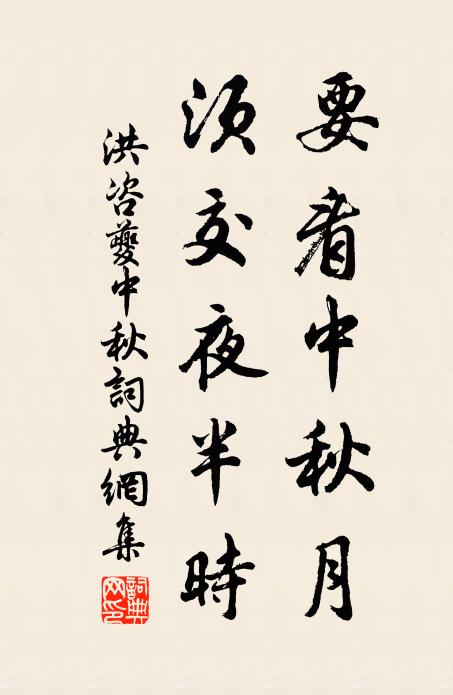 要看中秋月
須交夜半時
洪咨夔中秋詞典網集
詞典
网印